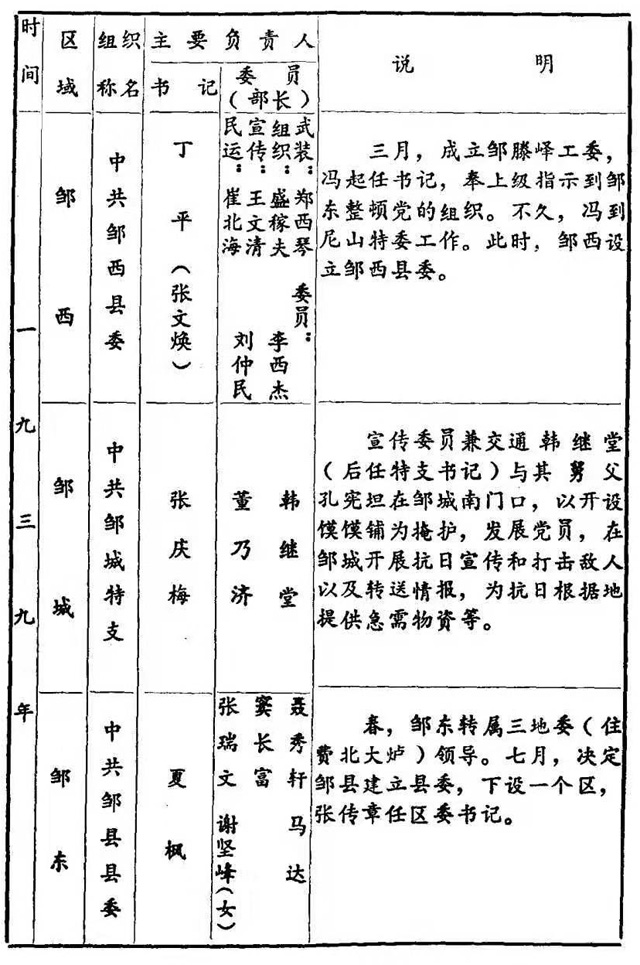 时间
区域
组织名称
主要负责人
书记
委员（部长）
说明
一九三九年
邹西
中共邹西县委
丁平（张文焕）
武装：郑西琴
组织：盛稼夫
宣传：王文清
民运：崔北海
委员：
李西杰
刘仲民
三月，成立邹滕峄工委，
冯起任书记，奉上级指示到邹
东整顿党的组织。不久，冯到
尼山特委工作。此时，邹西设
立邹西县委。
邹城
中共邹城特支
张庆梅
韩继堂
董乃济
宣传委员兼交通韩继堂
（后任特支书记）与其舅父
孔宪坦在邹城南门口，以开设
馍馍铺为掩护，发展党员，在
邹城开展抗日宣传和打击敌人
以及转送情报，为抗日根据地
提供急需物资等。
邹东
中共邹县县委
夏枫
聂秀轩
窦长富
张瑞文
马达
谢坚峰（女）
春，邹东转属三地委（住
费北大炉）领导。七月，决定
邹县建立县委，下设一个区，
张传章任区委书记。